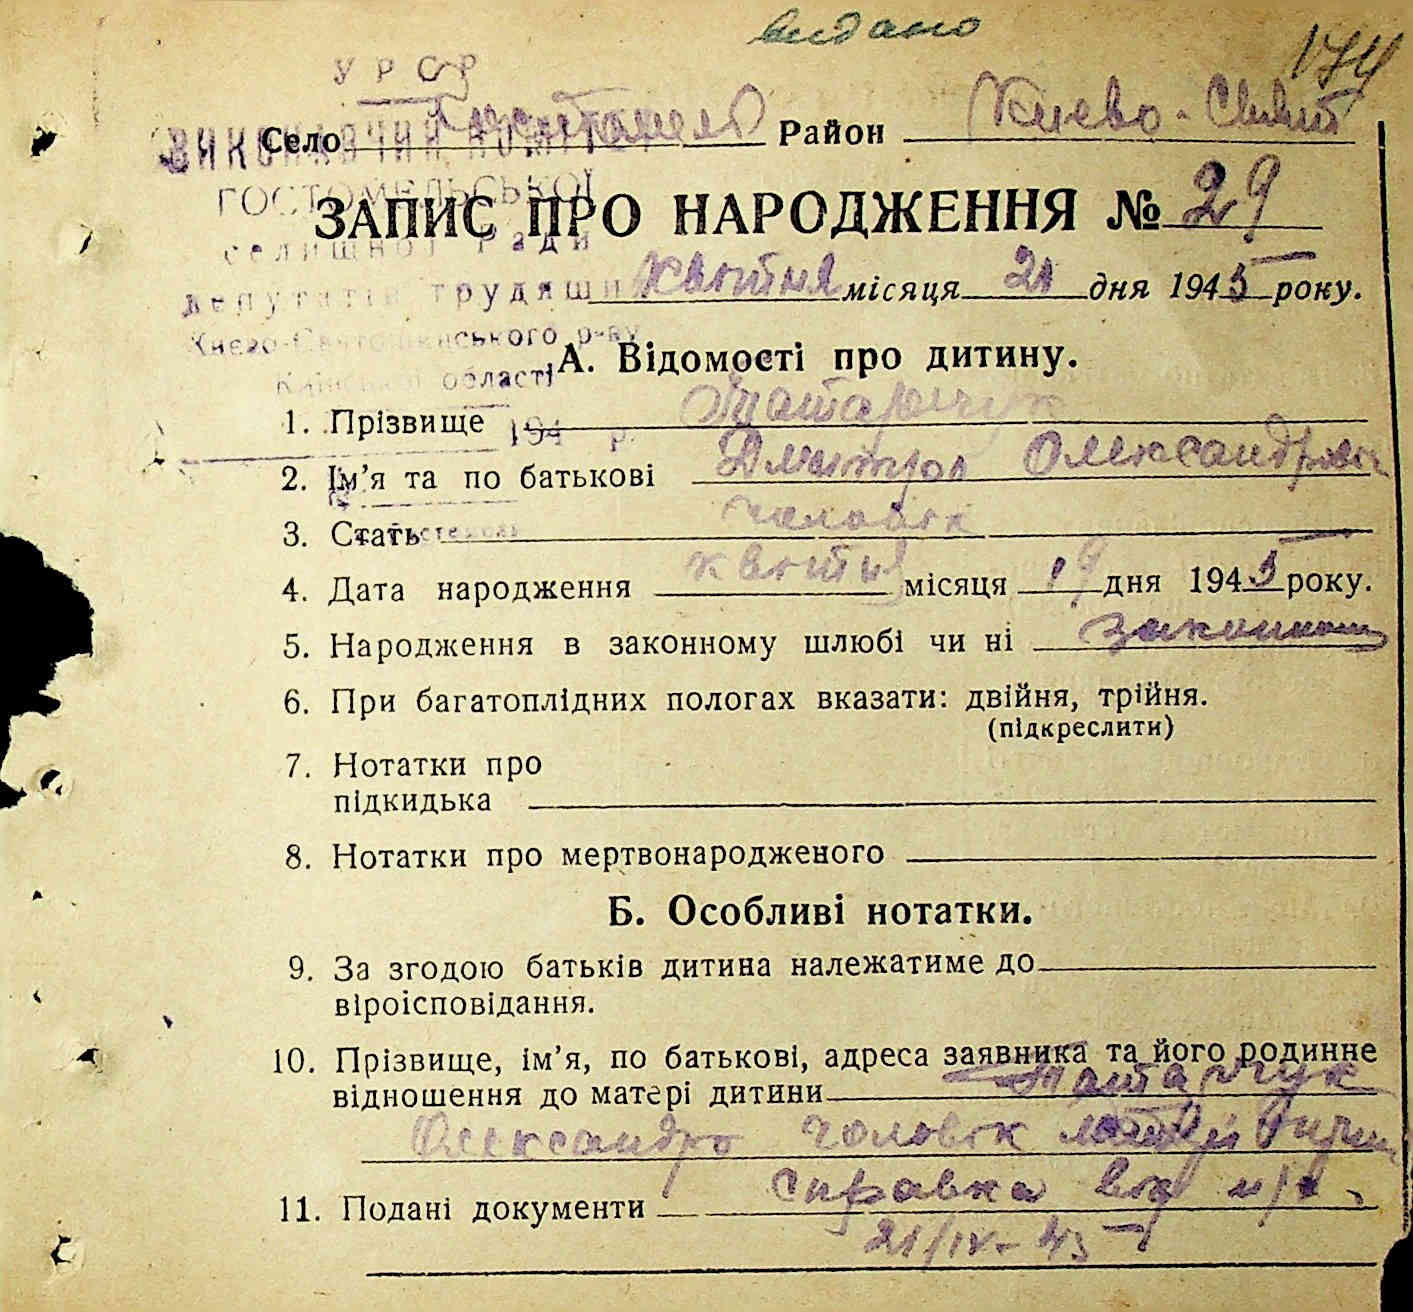 видано
174
УРСР
ВИКОНАВЧИЙ КОМІТЕТ
ГОСТОМЕЛЬСЬКОЇ
селишної Ради
депутатів трудящих
Києво-Святошинського р-ву
Київської області
194 р.
Село Гостомель Район Києво-Свят
ЗАПИС ПРО НАРОДЖЕННЯ № 29
квітня місяця 21 дня 1945 року.
А. Відомості про дитину.
1. Прізвище Татарчук
2. Ім’я та по батькові Дмитро Олександрович
3. Стать чоловік
4. Дата народження квітня місяця 19 дня 1945 року.
5. Народження в законному шлюбі чи ні законному
6. При багатоплідних пологах вказати: двійня, трійня.
(підкреслити)
7. Нотатки про
підкидька
8. Нотатки про мертвонародженого
Б. Особливі нотатки.
9. За згодою батьків дитина належатиме до
віроісповідання.
10. Прізвище, ім’я, по батькові, адреса заявника та його родинне
відношення до матері дитини Татарчук
Олександр чоловік матері
11. Подані документи справка від
21/IV-45